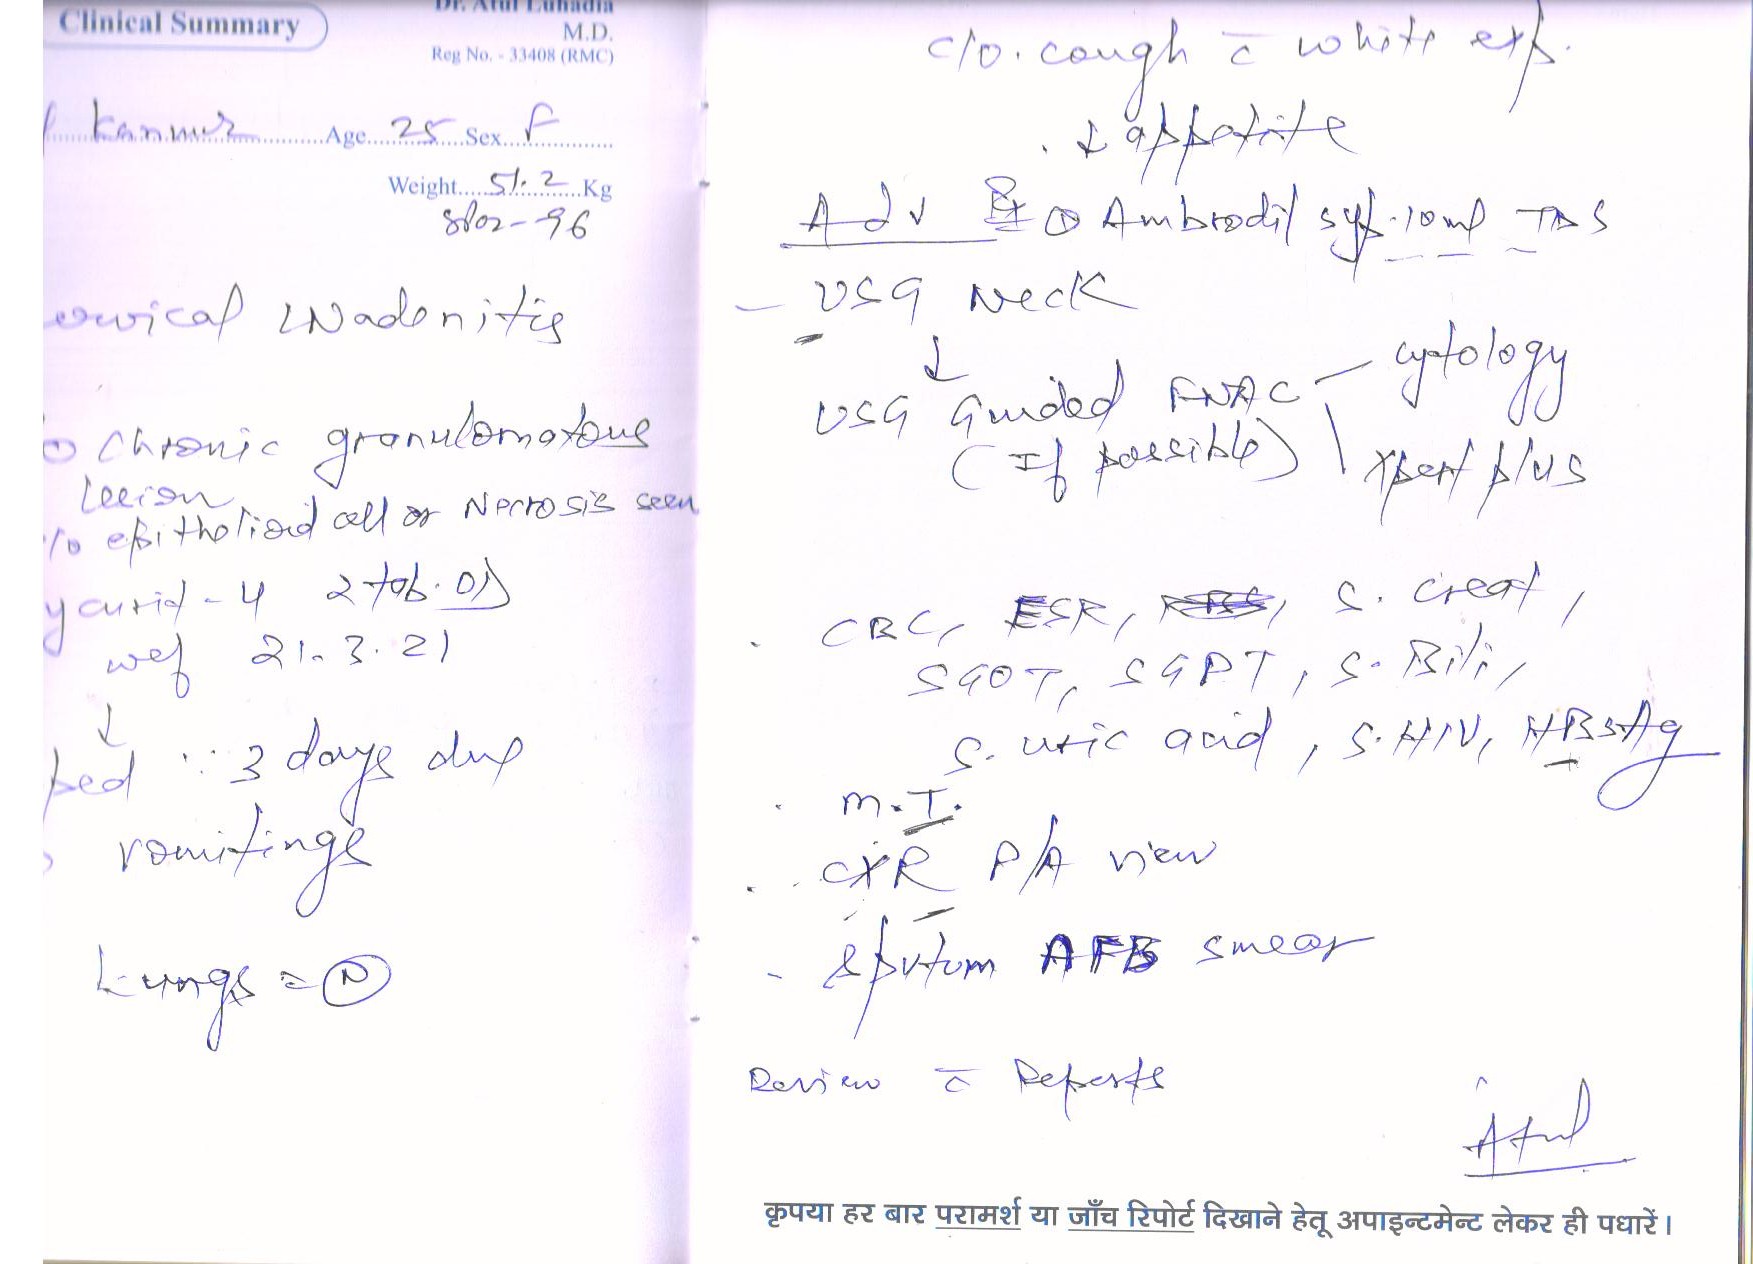 Clinical Summary
Dr. Atul Luhadia
M.D.
Reg No. - 33408 (RMC)
Kanwar Age 25 Sex F
Weight 51.2 Kg
SPO2-96
ervical LNadenitis
Chronic granulomatous
lesion
epithelioid cell or Necrosis seen
2 tab. OD
wef 21.3.21
↓
ped ∵ 3 days due
vomitings
Lungs = N
c/o. cough c̄ white exp.
. ↓ appetite
Adv Rx ① Ambrodil syp. 10ml TDS
- USG Neck
↓
USG Guided FNAC - cytology
(If possible) \ Xpert plus
. CBC, ESR, S. creat,
SGOT, SGPT, S. Bili,
S. uric acid, S. HIV, HBsAg
. M.T.
. CXR P/A view
- Sputum AFB smear
Review c̄ Reports
Atul
कृपया हर बार परामर्श या जाँच रिपोर्ट दिखाने हेतू अपाइन्टमेन्ट लेकर ही पधारें।